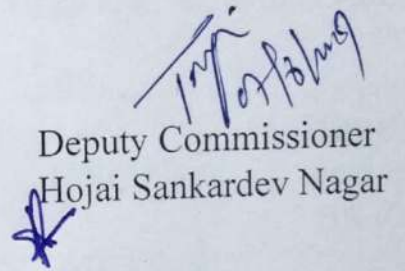 Deputy Commissioner
Hojai Sankardev Nagar